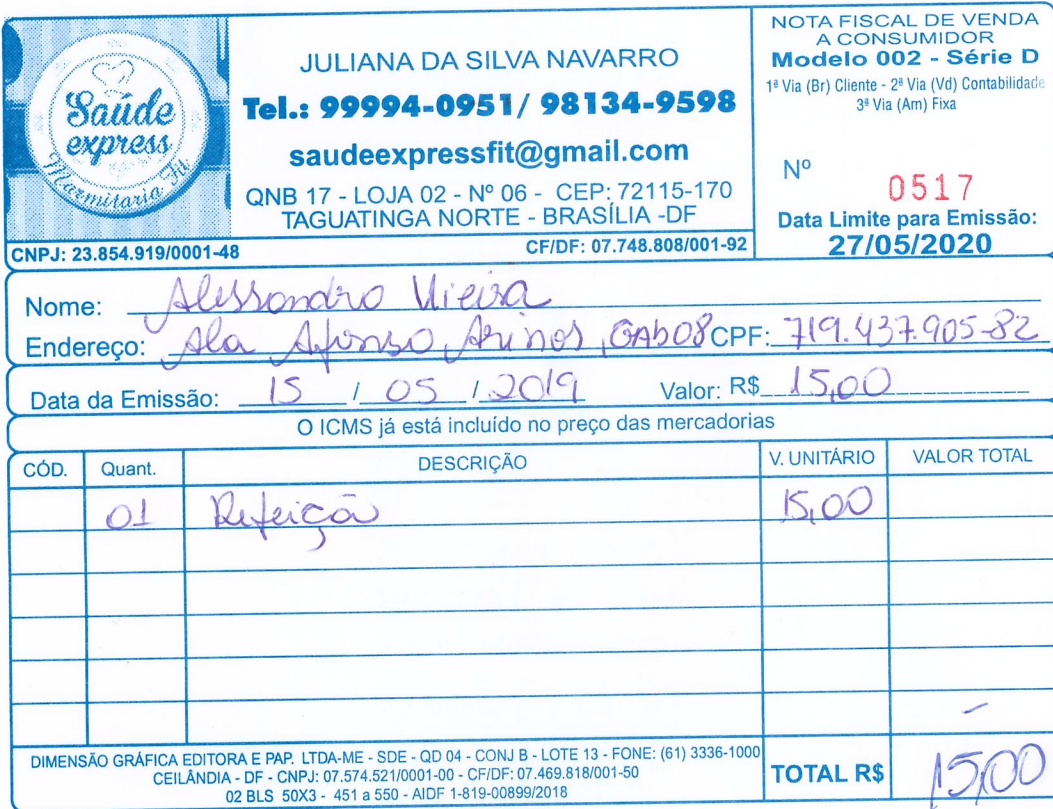 Saúde
express
Marmitaria Fit
JULIANA DA SILVA NAVARRO
Tel.: 99994-0951/ 98134-9598
saudeexpressfit@gmail.com
QNB 17 - LOJA 02 - Nº 06 - CEP: 72115-170
TAGUATINGA NORTE - BRASÍLIA -DF
CNPJ: 23.854.919/0001-48
CF/DF: 07.748.808/001-92
NOTA FISCAL DE VENDA
A CONSUMIDOR
Modelo 002 - Série D
1ª Via (Br) Cliente - 2ª Via (Vd) Contabilidade
3ª Via (Am) Fixa
Nº 0517
Data Limite para Emissão:
27/05/2020
Nome: Alessandro Vieira
Endereço: Ala Afonso Arinos, GAb08 CPF: 719.437.905-82
Data da Emissão: 15 / 05 / 2019 Valor: R$ 15,00
O ICMS já está incluído no preço das mercadorias
CÓD. Quant. DESCRIÇÃO V. UNITÁRIO VALOR TOTAL
01 Refeição 15,00
DIMENSÃO GRÁFICA EDITORA E PAP. LTDA-ME - SDE - QD 04 - CONJ B - LOTE 13 - FONE: (61) 3336-1000
CEILÂNDIA - DF - CNPJ: 07.574.521/0001-00 - CF/DF: 07.469.818/001-50
02 BLS 50X3 - 451 a 550 - AIDF 1-819-00899/2018
TOTAL R$ 15,00